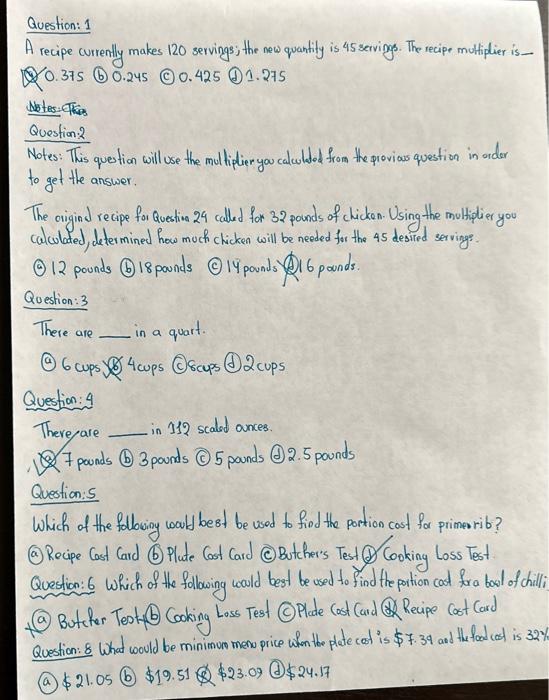 Question: 1
A recipe currently makes 120 servings; the new quantity is 45 servings. The recipe multiplier is —
ⓐ 0.375 ⓑ 0.245 ⓒ 0.425 ⓓ 1.275
Notes: This
Question 2
Notes: This question will use the multiplier you calculated from the previous question in order
to get the answer.
The original recipe for Question 24 called for 32 pounds of chicken. Using the multiplier you
calculated, determined how much chicken will be needed for the 45 desired servings.
ⓐ 12 pounds ⓑ 18 pounds ⓒ 14 pounds ⓓ 16 pounds.
Question: 3
There are ___ in a quart.
ⓐ 6 cups ⓑ 4 cups ⓒ 8 cups ⓓ 2 cups
Question: 4
There are ___ in 112 scaled ounces.
ⓐ 7 pounds ⓑ 3 pounds ⓒ 5 pounds ⓓ 2.5 pounds
Question: 5
Which of the following would best be used to find the portion cost for prime rib?
ⓐ Recipe Cost Card ⓑ Plate Cost Card ⓒ Butcher's Test ⓓ Cooking Loss Test
Question: 6 Which of the following would best be used to find the portion cost for a bowl of chilli
ⓐ Butcher Test ⓑ Cooking Loss Test ⓒ Plate Cost Card ⓓ Recipe Cost Card
Question: 8 What would be minimum menu price when the plate cost is $7.39 and the food cost is 32%
ⓐ $21.05 ⓑ $19.51 ⓒ $23.09 ⓓ $24.17